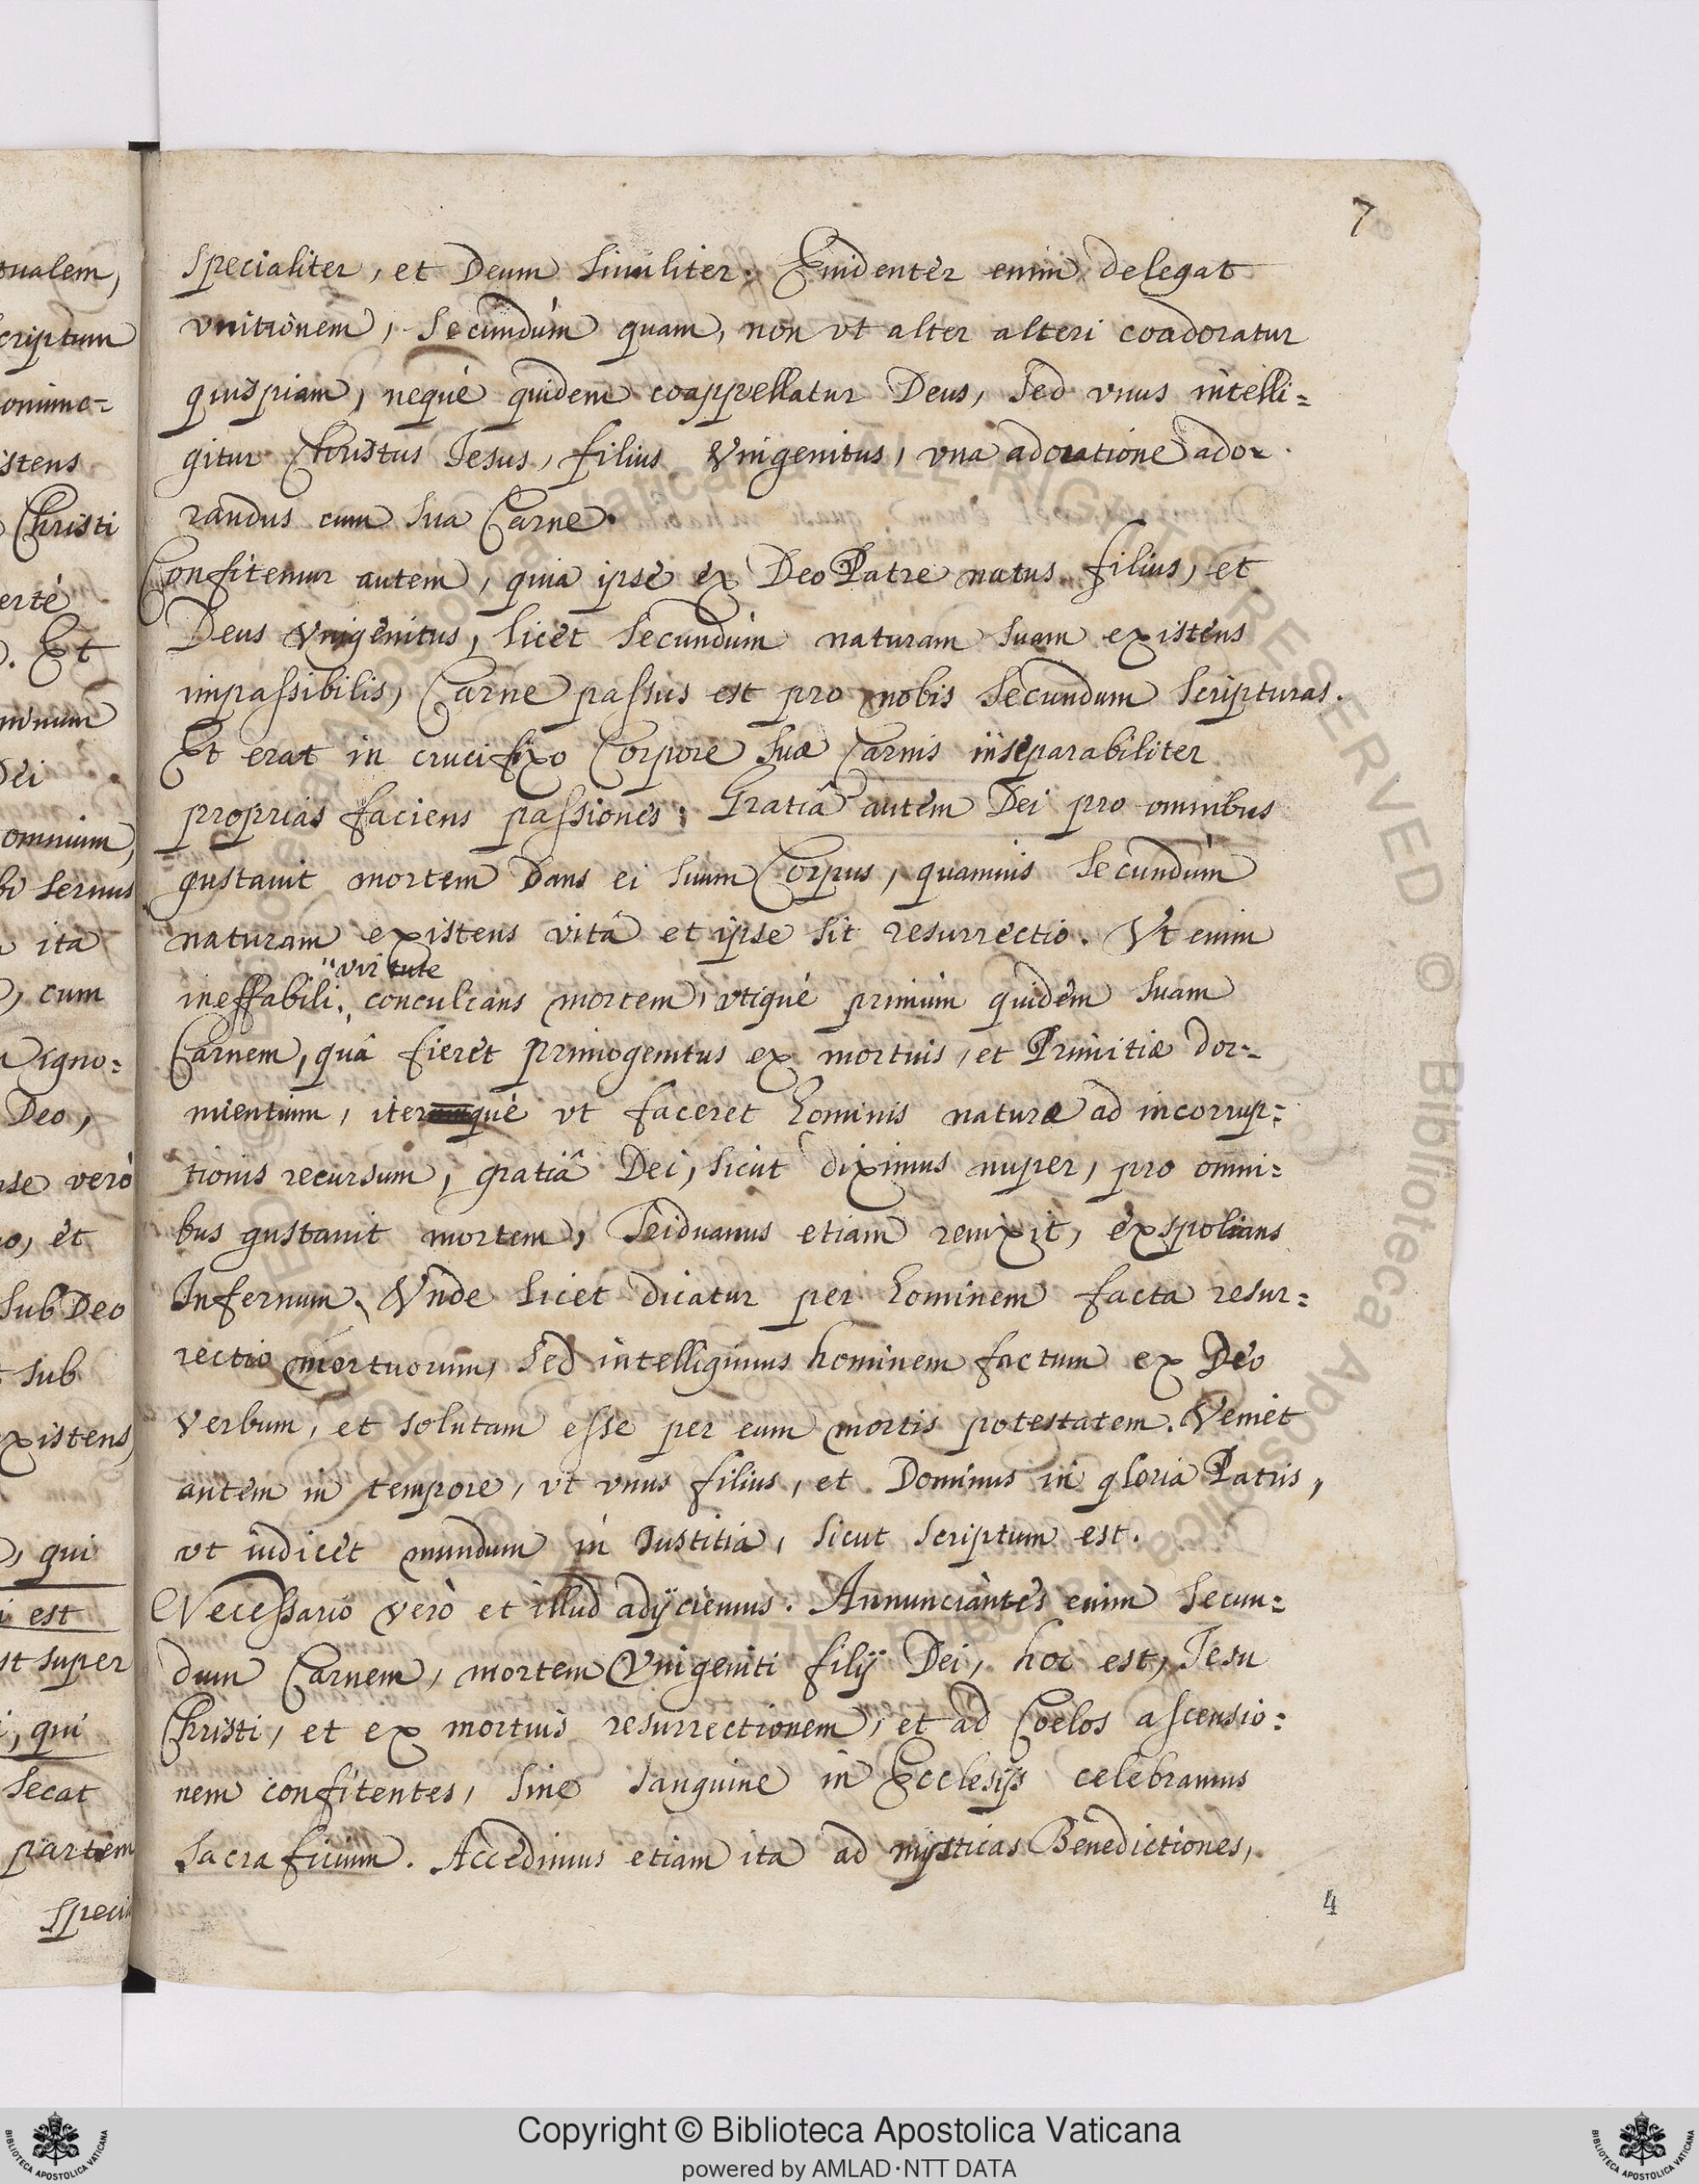 7
specialiter, et Deum similiter. Euidenter enim delegat
vnitionem, secundùm quam, non vt alter alteri coadoratur
quispiam, neque quidem coappellatur Deus, sed vnus intelli=
gitur Christus Iesus, filius Vnigenitus, vna adoratione ado=
randus cum sua Carne.
Confitemur autem, quia ipse ex Deo Patre natus filius, et
Deus Vnigenitus, licet secundùm naturam suam existens
impassibilis, Carne passus est pro nobis secundum scripturas.
Et erat in crucifixo Corpore suæ Carnis inseparabiliter
proprias faciens passiones: Gratiâ autem Dei pro omnibus
gustauit mortem dans ei suum Corpus, quamuis secundùm
naturam existens vitâ et ipse sit resurrectio. Vt enim
virtute
ineffabili conculcans mortem, vtiquè primùm quidem suam
Carnem, quâ fieret primogenitus ex mortuis, et Primitiæ dor=
mientium, iterumquè vt faceret hominis naturæ ad incorrup=
tionis recursum, gratiâ Dei, sicut diximus nuper, pro omni=
bus gustauit mortem, Triduanus etiam reuixit, exspolians
Infernum. Vnde licet dicatur per hominem facta resur=
rectio mortuorum, sed intelligimus hominem factum ex Deo
Verbum, et solutam esse per eum mortis potestatem. Veniet
autem in tempore, vt vnus filius, et Dominus in gloria Patris,
vt iudicet mundum in Iustitia, sicut scriptum est.
Necessario verò et illud adijciemus. Annunciantes enim secun=
dum Carnem, mortem Vnigeniti filij Dei, hoc est, Iesu
Christi, et ex mortuis resurrectionem, et ad Coelos ascensio=
nem confitentes, sine sanguine in Ecclesijs celebramus
Sacraficium. Accedimus etiam ita ad mysticas Benedictiones,
4
Copyright © Biblioteca Apostolica Vaticana
powered by AMLAD·NTT DATA